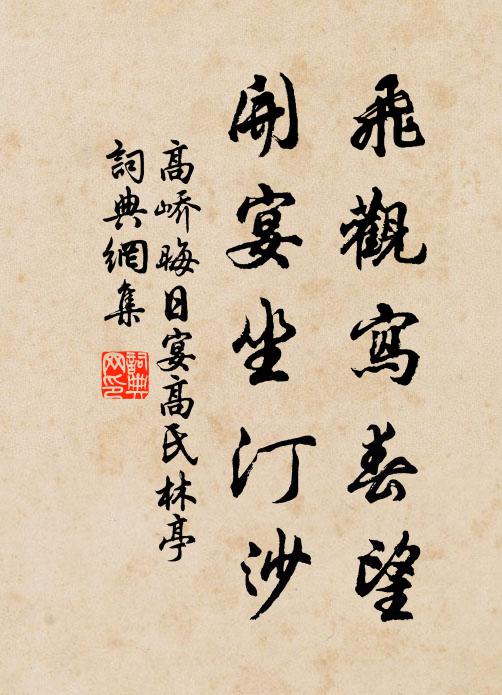 飛觀寫春望
開宴坐汀沙
高嶠晦日宴高氏林亭
詞典網集
詞典网印